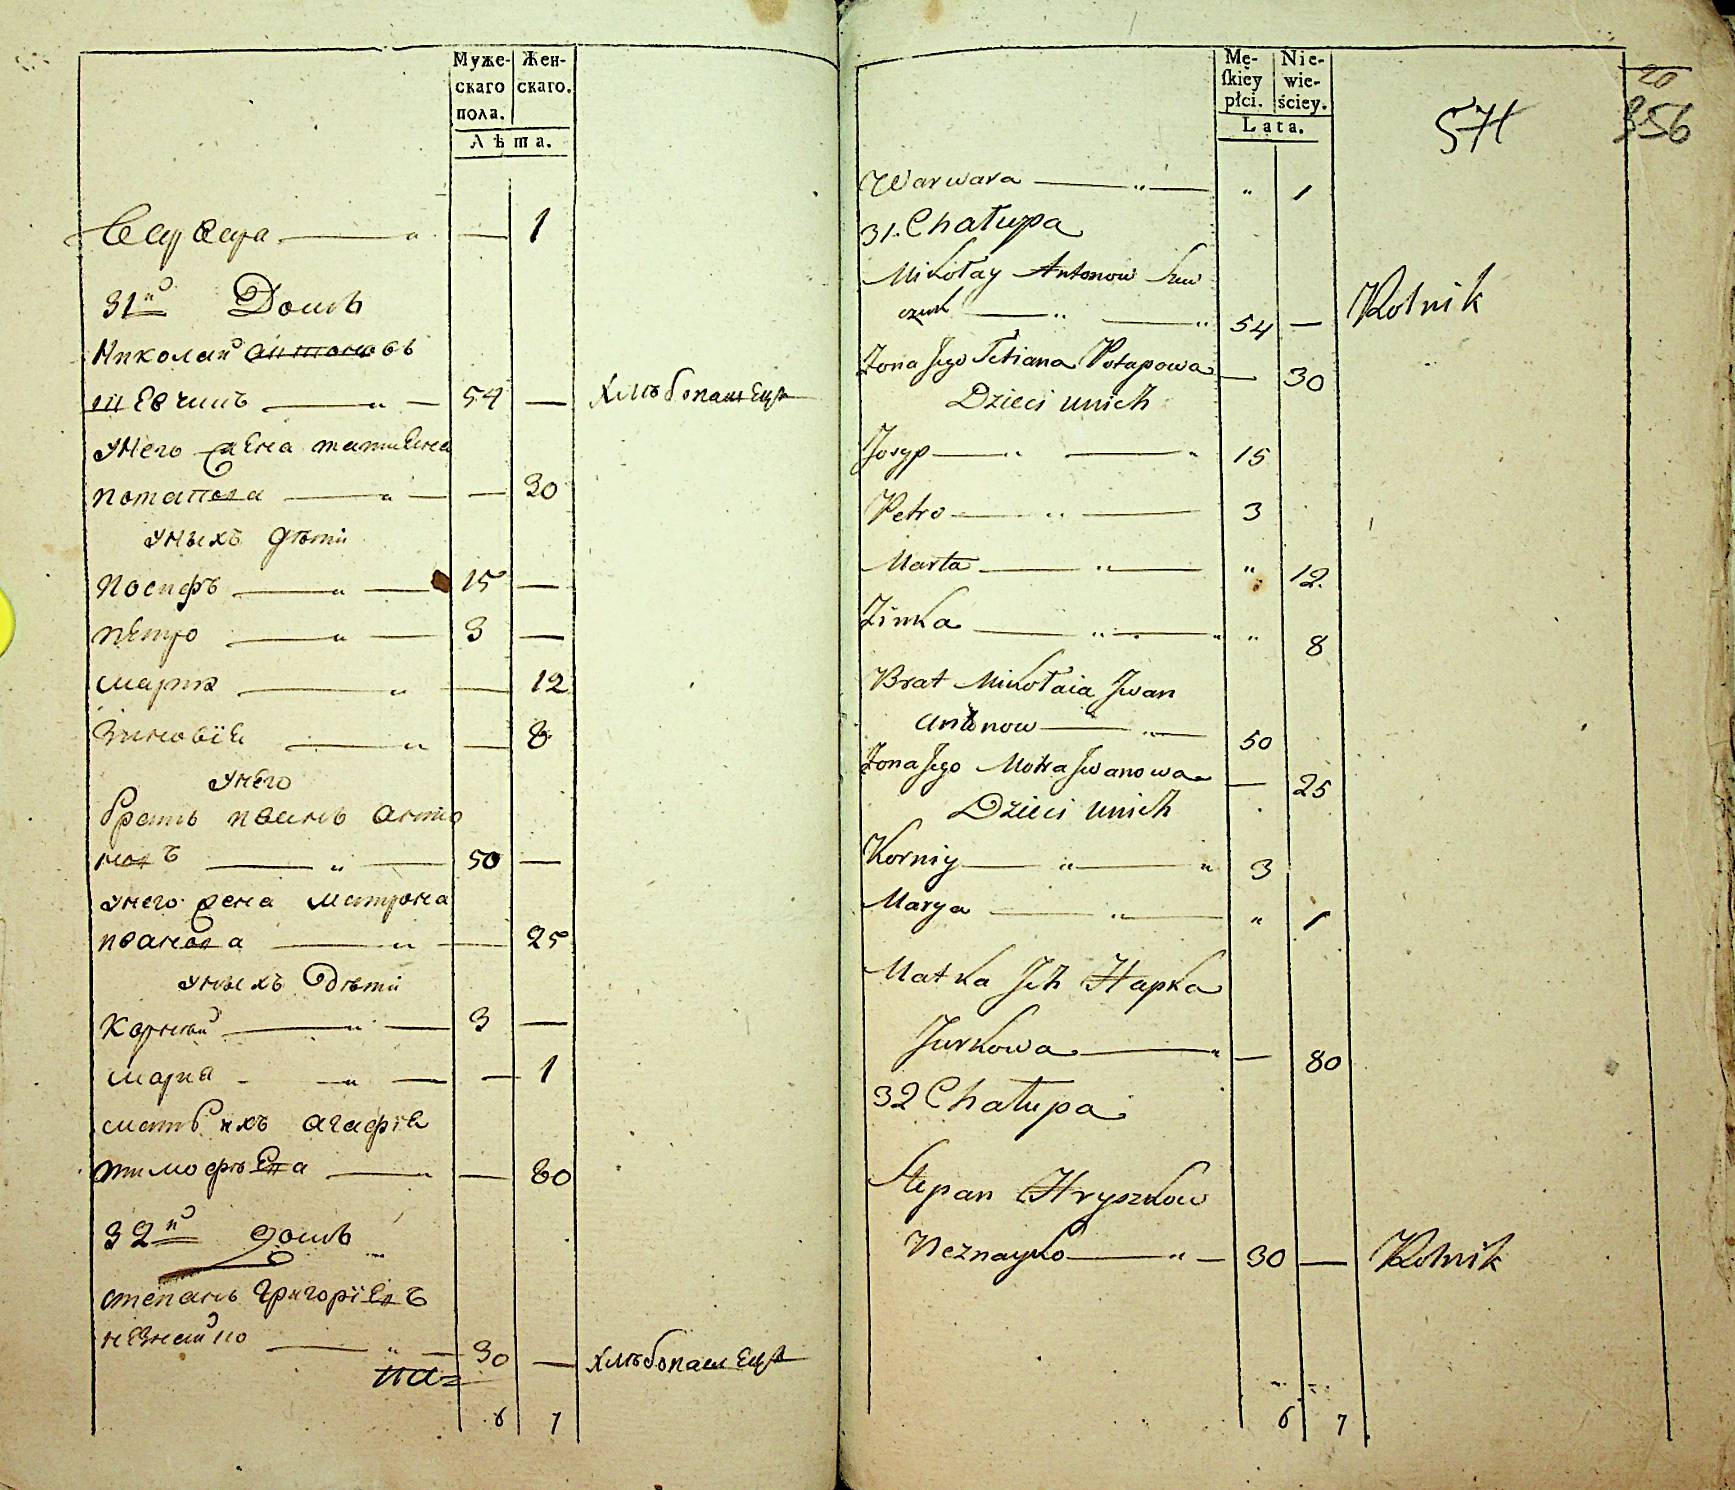 Муже- Жен-
скаго скаго.
пола.
Лѣта.
Варвара — „ — — 1
31й Домъ
Николай антоновъ
шевчикъ — „ — 54 — хлѣбопашецъ
унего жена татиѣна
потапова — „ — — 30
уныхъ дѣти
Иосифъ — „ — 15 —
пѣтро — „ — 3 —
марта — „ — 12
Зиновіѣ — „ — 8
унего
братъ иванъ анто
новъ — „ — 50 —
унего жена матрона
иванова — „ — 25
уныхъ Дѣти
Корнѣй — „ — 3 —
мария - „ — — 1
мать ихъ агафіѣ
тимофѣева — „ — 80
32й домъ
степанъ Григоріевъ
незнайко — „ — 30 — хлѣбопашецъ
6 7
Mę- Nie-
ſkiey wie-
płci. ściey.
Lata.
20
571
356
Warwara — „ — „ 1
31. Chałupa
Mikołay Antonow Szw
czuk — „ — „ 54 — Rolnik
Żona Jego Tetiana Potapowa — 30
Dzieci unich
Josyp — „ — „ 15
Petro — „ — 3
Marta — „ — „ 12.
Zinka — „ — „ „ 8
Brat Mikołaia Jwan
Antonow — „ — 50
Żona Jego Motra Jwanowa — 25
Dzieci unich
Korniy — „ — „ 3
Marya — „ — „ 1
Matka Jch Hapka
Jurkowa — „ — 80
32 Chałupa
Stepan Hryszkow
Neznayko — „ — 30 — Rolnik
6 7